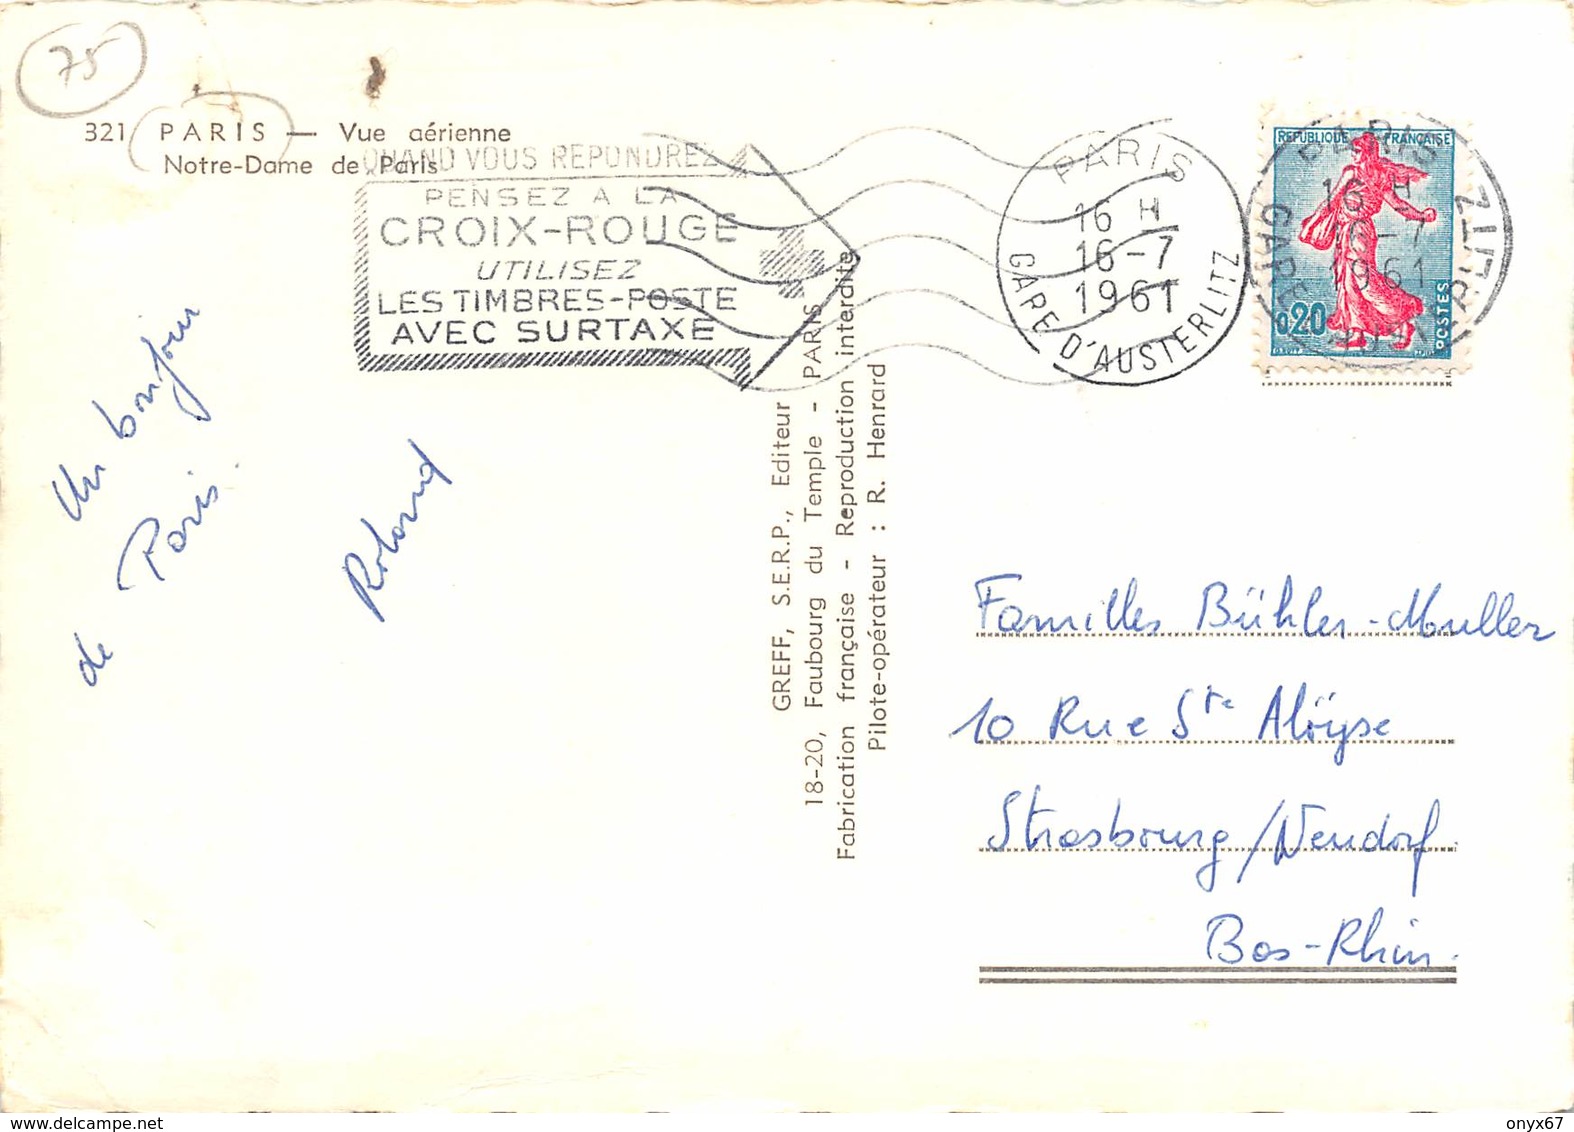 75
321 PARIS — Vue aérienne
Notre-Dame de Paris
QUAND VOUS REPONDREZ
PENSEZ A LA
CROIX-ROUGE
UTILISEZ
LES TIMBRES-POSTE
AVEC SURTAXE
PARIS
16 H
16-7
1961
GARE D'AUSTERLITZ
REPUBLIQUE FRANÇAISE
0,20
POSTES
PARIS
16 H
16-7
1961
GARE D'AUSTERLITZ
Un bonjour
de Paris.
Roland
GREFF, S.E.R.P., Editeur
18-20, Faubourg du Temple - PARIS
Fabrication française - Reproduction interdite
Pilote-opérateur : R. Henrard
Familles Bühler-Muller
10 Rue Ste Alöyse
Strasbourg/Neudorf
Bas-Rhin.
onyx67